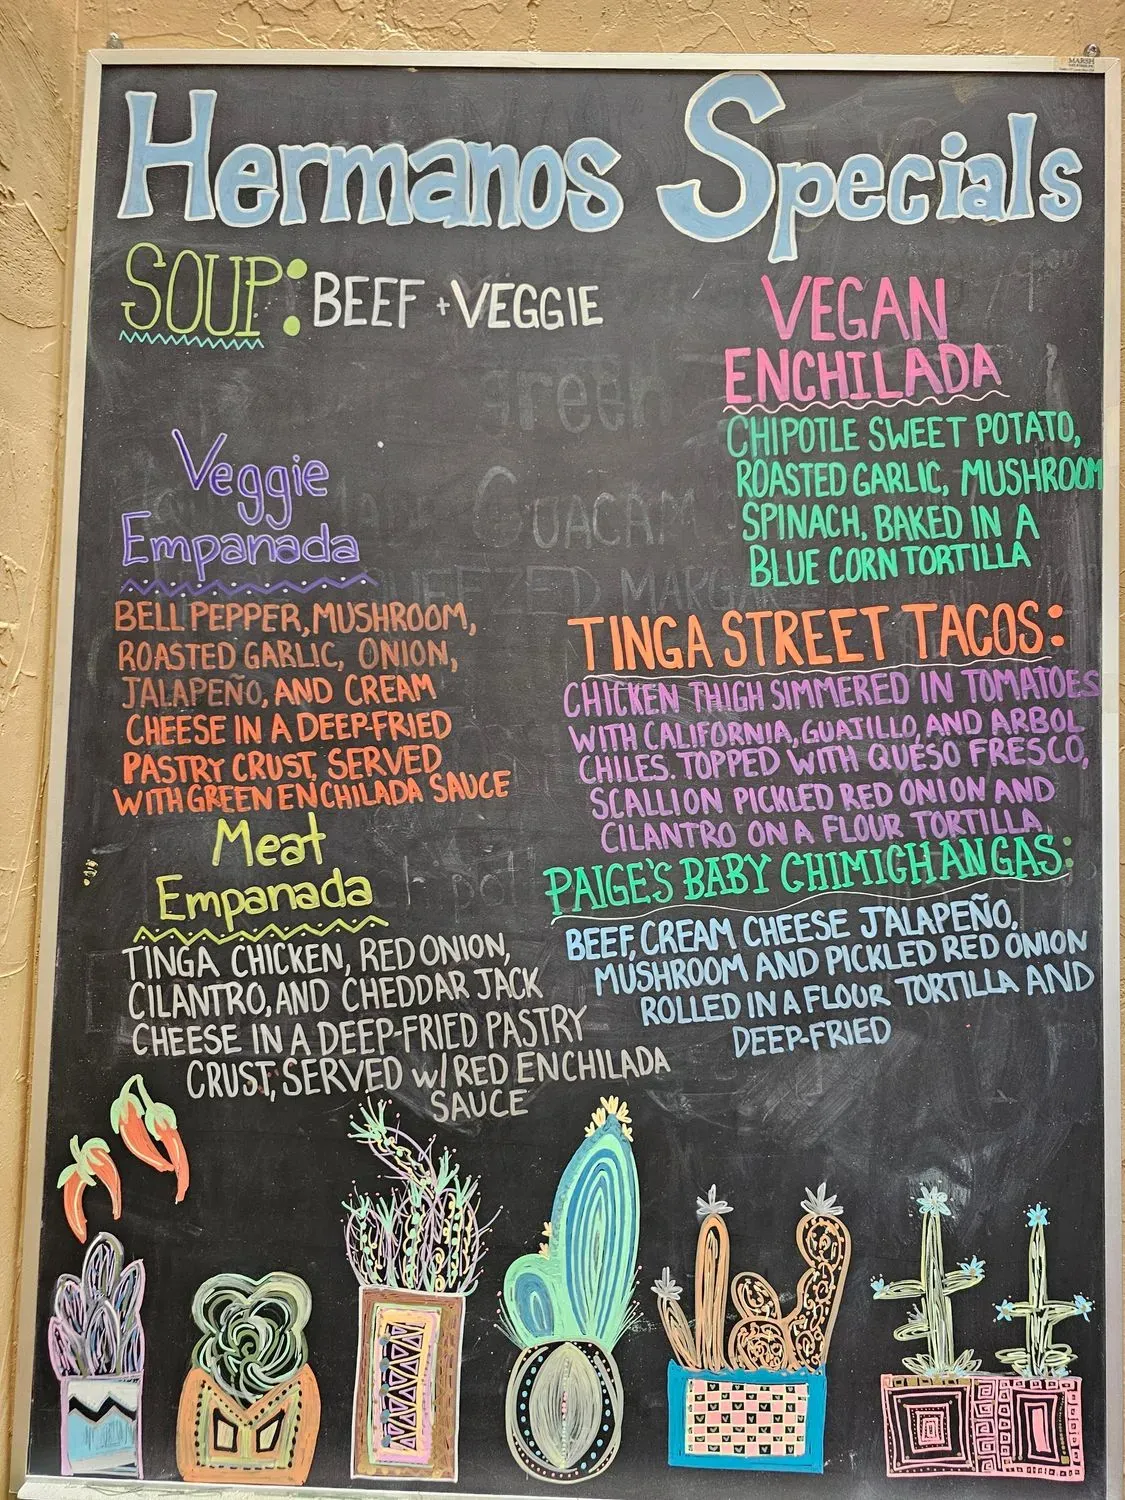 Hermanos Specials
SOUP: BEEF + VEGGIE
Veggie
Empanada
BELL PEPPER, MUSHROOM,
ROASTED GARLIC, ONION,
JALAPEÑO, AND CREAM
CHEESE IN A DEEP-FRIED
PASTRY CRUST, SERVED
WITH GREEN ENCHILADA SAUCE
Meat
Empanada
TINGA CHICKEN, RED ONION,
CILANTRO, AND CHEDDAR JACK
CHEESE IN A DEEP-FRIED PASTRY
CRUST, SERVED w/ RED ENCHILADA
SAUCE
VEGAN
ENCHILADA
CHIPOTLE SWEET POTATO,
ROASTED GARLIC, MUSHROOM
SPINACH, BAKED IN A
BLUE CORN TORTILLA
TINGA STREET TACOS:
CHICKEN THIGH SIMMERED IN TOMATOES
WITH CALIFORNIA, GUAJILLO, AND ARBOL
CHILES. TOPPED WITH QUESO FRESCO,
SCALLION PICKLED RED ONION AND
CILANTRO ON A FLOUR TORTILLA
PAIGE'S BABY CHIMIGHANGAS:
BEEF, CREAM CHEESE JALAPEÑO,
MUSHROOM AND PICKLED RED ONION
ROLLED IN A FLOUR TORTILLA AND
DEEP-FRIED
MARSH
green
GUACAM